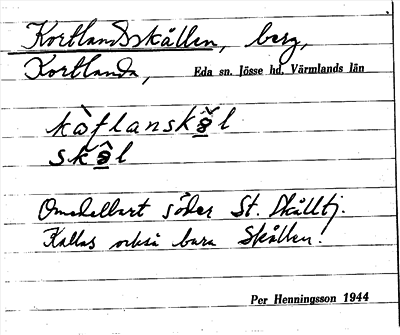 Kortlandsskållen, berg,
Kortlanda, Eda sn. Jösse hd. Värmlands län
Omedelbart söder St. Skålltj.
Kallas också bara Skållen.
Per Henningsson 1944